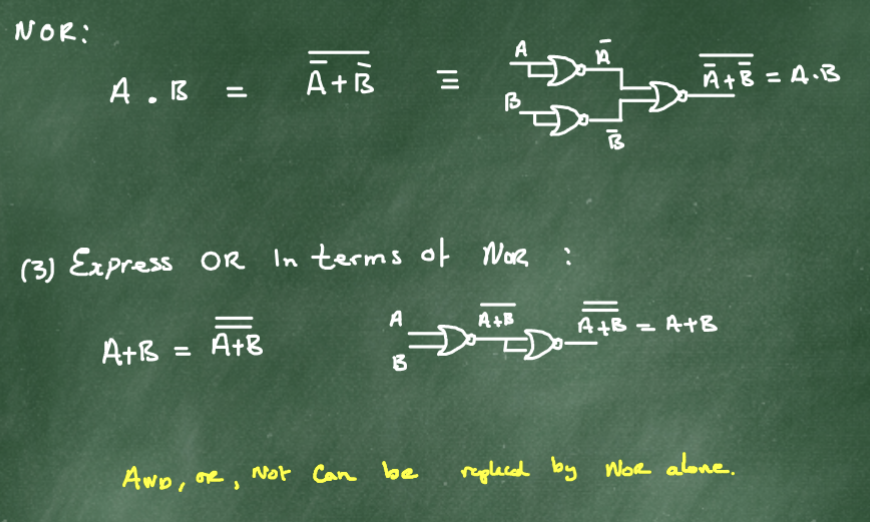 NOR:
A . B = \overline{\overline{A}+\overline{B}} ≡
A
\overline{A}
B
\overline{B}
\overline{\overline{A}+\overline{B}} = A.B
(3) Express OR In terms of NOR :
A+B = \overline{\overline{A+B}}
A
B
\overline{A+B}
\overline{\overline{A+B}} = A+B
AND, OR, NOT Can be replced by NOR alone.